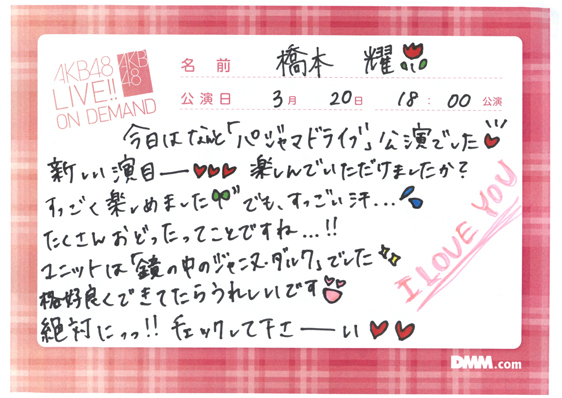 AKB48
LIVE!!
ON DEMAND
AKB
48
名前 橋本 耀
公演日 3月 20日 18:00 公演
今日はなんと「パジャマドライブ」公演でした
新しい演目ー 楽しんでいただけましたか?
すっごく楽しめました でも、すっごい汗...
たくさんおどったってことですね...!!
ユニットは「鏡の中のジャンヌ・ダルク」でした
格好良くできてたらうれしいです
絶対にっっ!! チェックして下さーい
I LOVE YOU
DMM.com